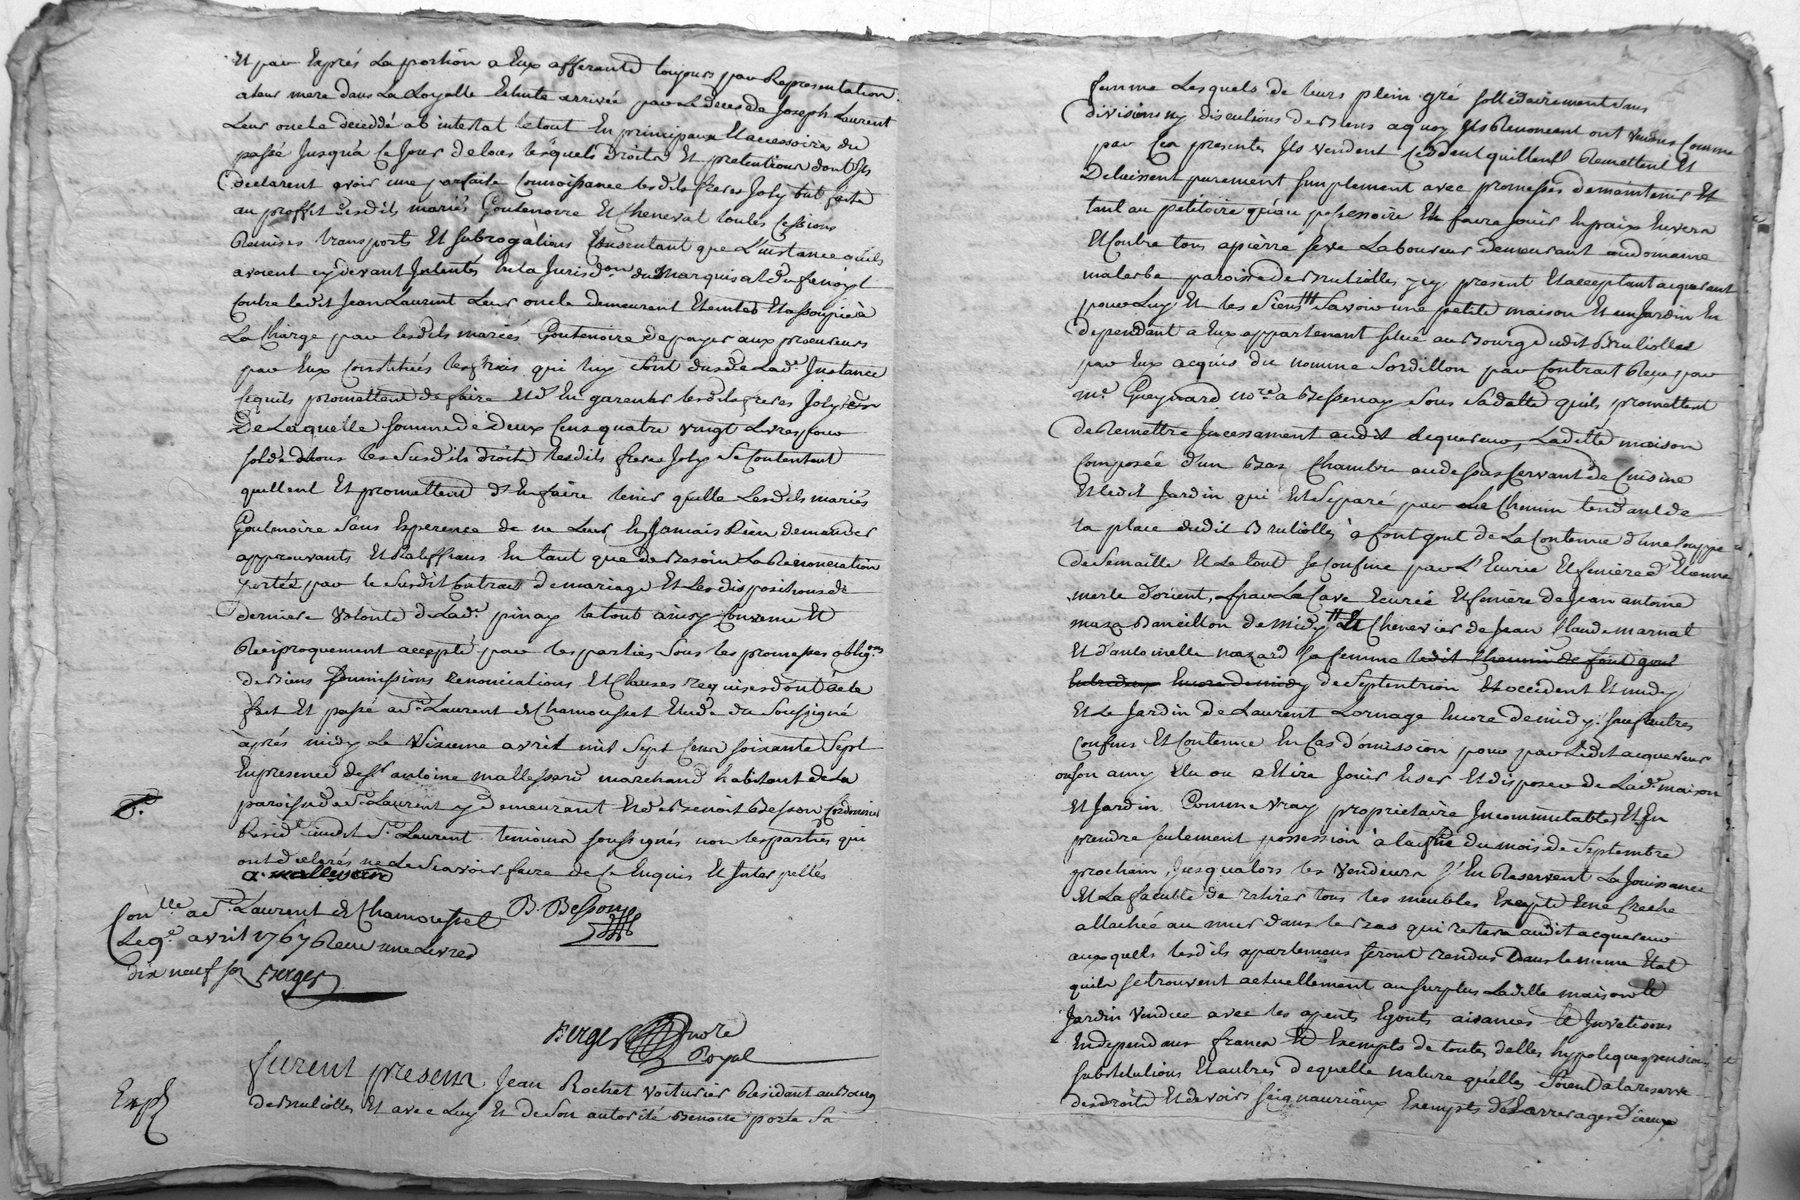 Et par Exprés La portion a Eux afferante toujours par Representation
a leur mere dans La Loyalle Echute arrivée par Le deces de Joseph Laurent
Leur oncle deceddé ab intestat le tout En principaux Et accessoires du
passé Jusqu'à Ce Jour de tous lesquels droits Et pretentions dont ils
declarent avoir une parfaite Connoissance lesdits freres Joly ont faite
au proffit desdits mariés Goutenoire Et Cheneval toutes Cessions
Remises transports Et subrogations Consentant que L'instance quils
avoient cy devant Intentés En la Jurisd.on du Marquisat de fenoyl
Contre ledit Jean Laurent Leur oncle demeurent Eteintes Et assoupie à
La Charge par lesdits mariés Goutenoire de payer aux procureurs
par Eux Constitués les frais qui luy sont dus de Lad.e Instance
Ce quils promettent de faire Et d'En garentir lesdits freres Joly
De Laquelle somme de Deux Cens quatre vingt Livres pour
solde de tous les susdits droits lesdits freres Joly se Contentent
quittent Et promettent d'En faire tenir quitte Lesdits mariés
Goutenoire sans Esperence de ne Leur En Jamais Rien demander
approuvants Et Ratiffians En tant que de Besoin La Renonciation
portée par le susdit Contrat de mariage Et Les dispositions de
derniere volonté de Lad.e pinay le tout ainsy Convenu Et
Réciproquement accepté par les parties sous les promesses oblig.ons
de Biens soumissions renonciations Et Clauses requises dont acte
fait Et passé a S.t Laurent de Chamousset Etude du soussigné
après midy Le sixieme avril mil sept Cens soixante sept
En presence de s.r antoine mallessard marchand habitant de La
paroisse de S.t Laurent y demeurant Et de Benoit Besson Cordonnier
Resid.t audit S.t Laurent temoins soussignés non les parties qui
ont declarés ne Le Scavoir faire de Ce Enquis Et Interpellés
B. Besson
Con.lle a S.t Laurent de Chamousset
Le 9.e avril 1767 Reçu une Livres
dix neuf sols Berger
Berger no.re
Royal
furent presens Jean Rochet voiturier Residant au Bourg
de Brulliolles Et avec Luy Et de Son autorité Benoite porte Sa
femme Lesquels de leurs plein gré sollidairement sans
divisions ny discutions de Biens a quoy ils Renoncent ont vendus Comme
par Ces presentes ils vendent Cèddent quittent Remettent Et
Delaissent purement simplement avec promesses de maintenir Et
tant au petitoire qu'au possessoire Et faire jouir En paix Envers
Et Contre tous a pierre seve Laboureur demeurant au domaine
malerbe paroisse de Brulliolles icy present Et acceptant acquerant
pour Luy Et les siens Savoir une petite maison Et un Jardin En
dependant a Eux appartenant situé au Bourg dudit Brulliolles
par Eux acquis du nomme Sordillon par Contrat Reçu par
m.e Gueynard no.re a Bessenay Sous Sa datte quils promettent
de Remettre Incessament audit Acquereur, Laditte maison
Composée d'un Bas Chambre au dessus servant de Cuisine
Et ledit Jardin qui Est separé par Le Chemin tendant de
la place dudit Brulliolles à font gout de La Contenue d'une Couppe
de Semaille Et Le tout se Confine par L'Ecurie Et feniere d'Etienne
merle d'orient, par La Cave Ecurie Et feniere de Jean antoine
maza Bancillon de Midy Et Chenevier de Jean Claude marnat
Et d'antoinette nazard sa femme ledit Chemin de font gout
Entredeux Encore de midy de Septentrion Et occident Et midy
Et Le Jardin de Laurent Lornage Encore de midy. sauf autres
Confins Et Contenue En Cas d'omission pour par Ledit acquereur
ou son amy Elu ou a Elire Jouir User Et disposer de Lad.e maison
Et Jardin Comme vray proprietaire Incommutable Et En
prendre seulement possession à la fin du mois de Septembre
prochain, Jusqu'alors les vendeurs s'En Reservent La Jouissance
Et La faculté de retirer tous les meubles Excepté Une Creche
attachée au mur dans le Bas qui restera audit acquereur
auxquels lesdits apartemens seront rendus Dans le meme Etat
quils se trouvent actuellement au surplus Laditte maison Et
Jardin vendue avec les apents Egouts aisances Et Invetisons
Independans francs Et Exempts de toutes dettes hypoteques pensions
substitutions Et autres de quelle nature qu'elles soient a la reserve
des droits Et devoirs seigneuriaux Exempts d'Earrerages d'iceux
Exp.é